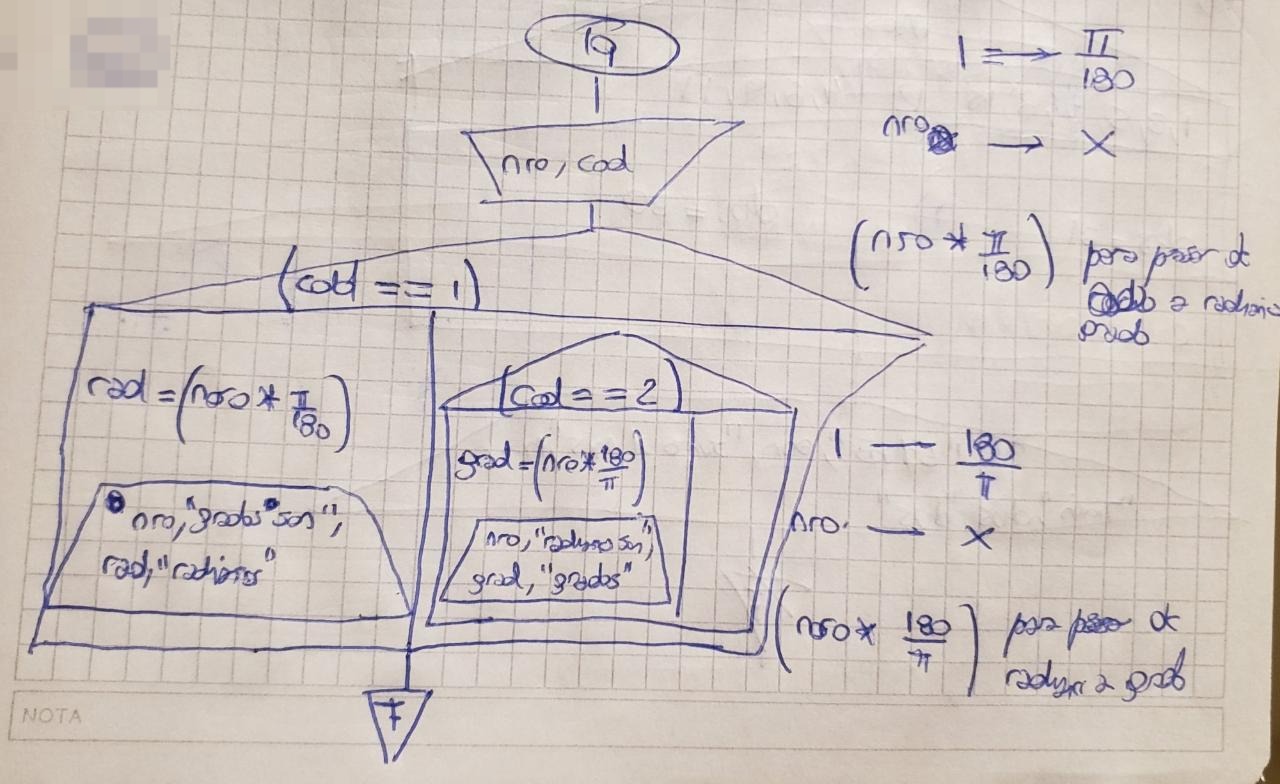 19
nro, cod
(cod == 1)
rad = (nro * π/180)
nro, "grados son",
rad, "radianes"
(cod == 2)
grad = (nro * 180/π)
nro, "radianes son",
grad, "grados"
F
1 → π/180
nro → X
(nro * π/180) para pasar de
a radianes
grados
1 — 180/π
nro. → X
(nro * 180/π) para pasar de
radian a grados
NOTA